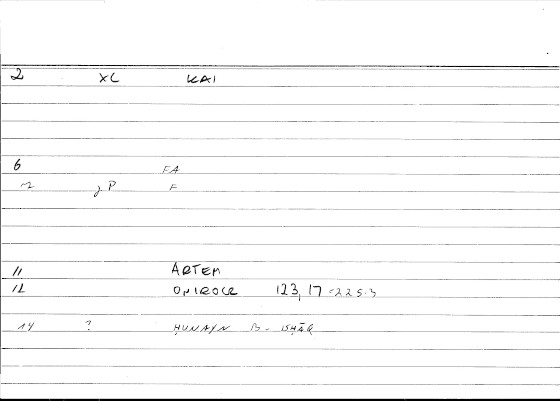 2 XC KAI
6 FA
P F
11 ARTEM
12 ONIROCR 123,17=225.3
14 ? ḤUNAYN B. ISḤĀQ